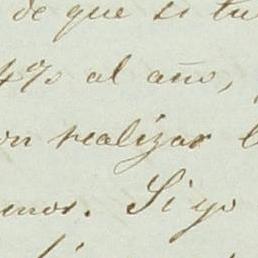 de que si tu
4% al año,
on realizar l
enos. Si yo